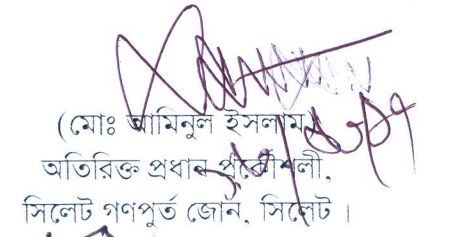 (মোঃ আমিনুল ইসলাম)
অতিরিক্ত প্রধান প্রকৌশলী,
সিলেট গণপুর্ত জোন, সিলেট ।